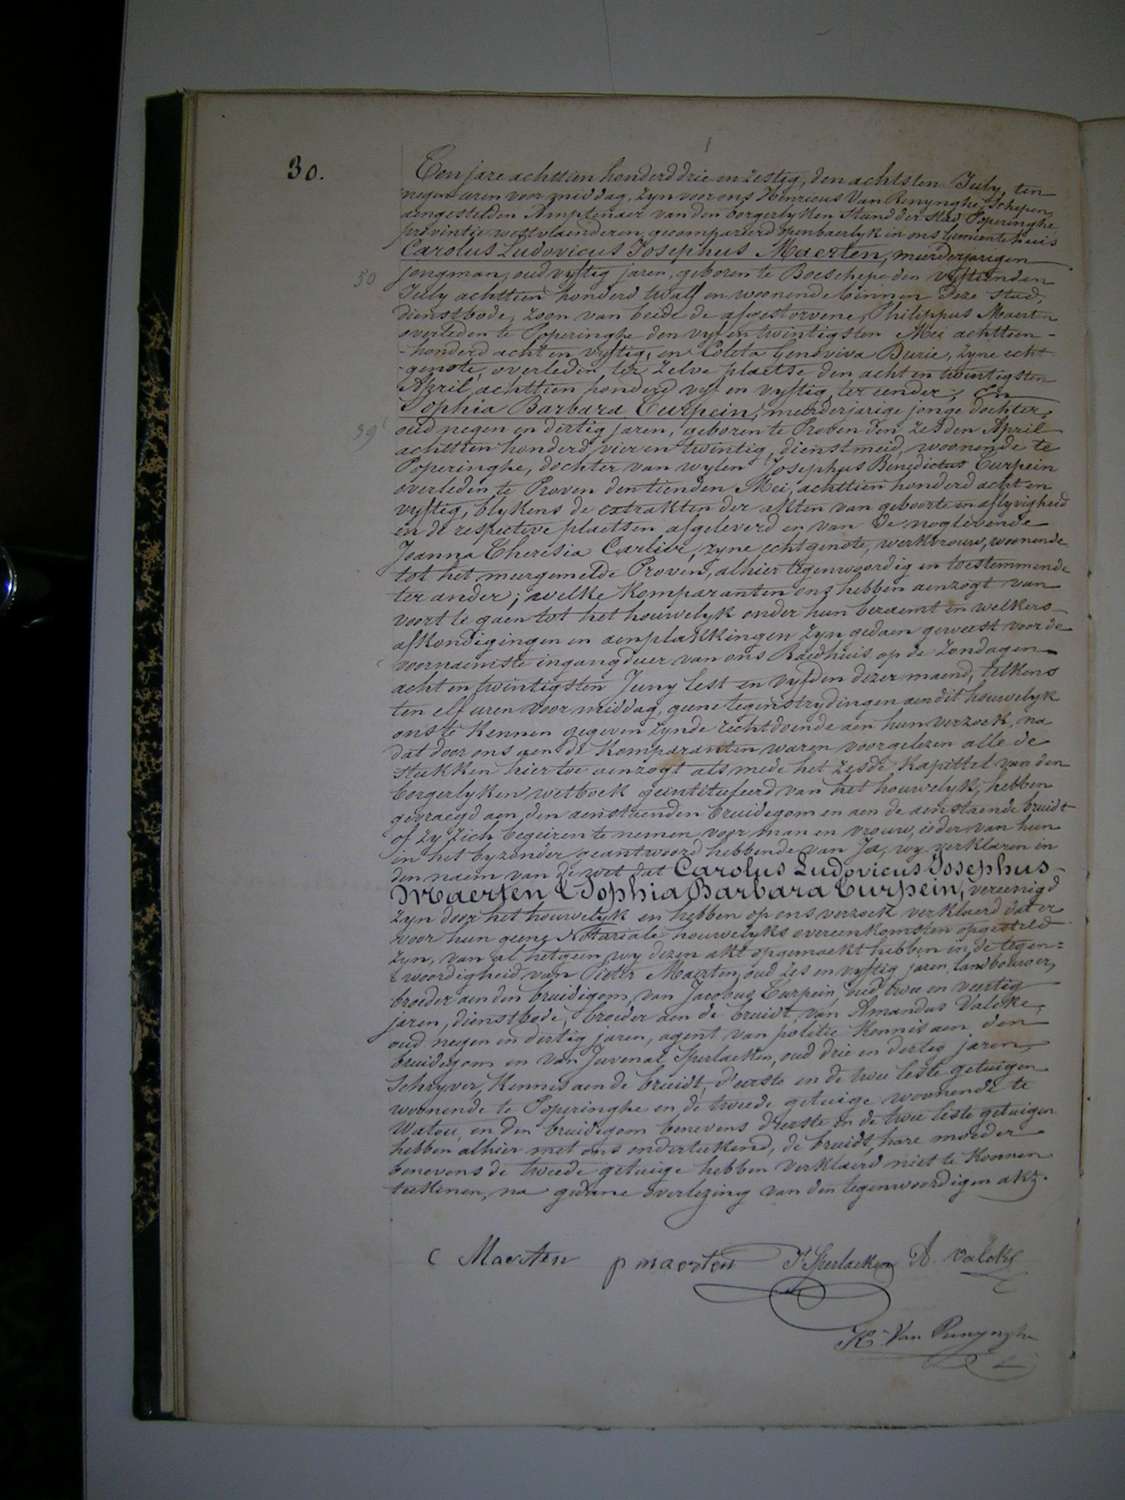 30.
Ten jare achttien honderd drie en zestig, den achtsten July, ten
negen uren voor middag, zyn voor ons Henricus Van Renynghe, Schepen,
aengestelden Amptenaer van den borgerlyken stand der stad Poperinghe,
provintie westvlaenderen, gecompareerd openbaerlyk in ons Gemeentehuis
Carolus Ludovicus Josephus Maerten, meerderjarigen
50
jongman, oud vyftig jaren, geboren te Boeschepe den vyftienden
July achttien honderd twalf en woonende binnen deze stad,
dienstbode, zoon van beide de afgestorvene, Philippus Maerten
overleden te Poperinghe den vyf en twintigsten Mei achttien-
-honderd acht en vyftig, en Coleta Genoviva Durie, zyne echt-
-genote, overleden ter zelve plaetse den acht en twintigsten
April achttien honderd vyf en vyftig, ter eender, En
Sophia Barbara Turpein, meerderjarige jonge dochter,
39
oud negen en dertig jaren, geboren te Proven den zesden April
achttien honderd vier en twintig, dienstmeid, woonende te
Poperinghe, dochter van wylen Josephus Benedictus Turpein
overleden te Proven den tienden Mei, achttien honderd acht en
vyftig, blykens de extrakten der akten van geboorte en aflyvigheid
in de respective plaetsen afgeleverd en van de noglevende
Jeanna Theresia Carlier, zyne echtgenote, werkvrouw, woonende
tot het meergemelde Proven, alhier tegenwoordig en toestemmende
ter ander; welke komparanten ons hebben aenzogt van
voort te gaen tot het houwelyk onder hun beraemt en welkers
afkondigingen en aenplakkingen zyn gedaen geweest voor de
voornaemste ingangdeur van ons Raedhuis op de zondagen
acht en twintigsten Juny lest en vyfden dezer maend, telkens
ten elf uren voor middag, geene tegenstrydingen aen dit houwelyk
ons te kennen gegeven zynde rechtdoende aen hun verzoek, na
dat door ons aen de komparanten waren voorgelezen alle de
stukken hier toe aenzogt als mede het zesde kapittel van den
borgerlyken wetboek geintituleerd van het houwelyk, hebben
gevraegd aen den aenstaenden bruidegom en aen de aenstaende bruidt
of zy zich begeiren te nemen voor man en vrouw, ieder van hun
in het byzonder geantwoord hebbende van Ja, wy verklaren in
den naem van de wet dat Carolus Ludovicus Josephus
Maerten & Sophia Barbara Turpein, vereenigd
zyn door het houwelyk en hebben op ons verzoek verklaerd dat er
voor hun geene Notariale houwelyks overeenkomsten opgesteld
zyn, van al hetgeen wy dezen akt opgemaekt hebben in de tegen=
=woordigheid van Pieter Maerten, oud zes en vyftig jaren, landbouwer,
broeder aen den bruidigom, van Jacobus Turpein, oud twee en veertig
jaren, dienstbode, broeder aen de bruidt, van Amandus Valcke,
oud negen en dertig jaren, agent van politie, kennis aen den
bruidigom en van Juvenal Sperlaeken, oud drie en dertig jaren,
Schryver, kennis aen de bruidt, d'eerste en de twee leste getuigen
woonende te Poperinghe en de tweede getuige woonende te
Watou, en den bruidigom benevens d'eerste en de twee leste getuigen
hebben alhier met ons onderteekend, de bruidt, hare moeder
benevens de tweede getuige hebben verklaerd niet te konnen
teekenen, na gedane overlezing van den tegenwoordigen akt.
C Maerten p maerten J Sperlaeken A. Valcke
H. Van Renynghe